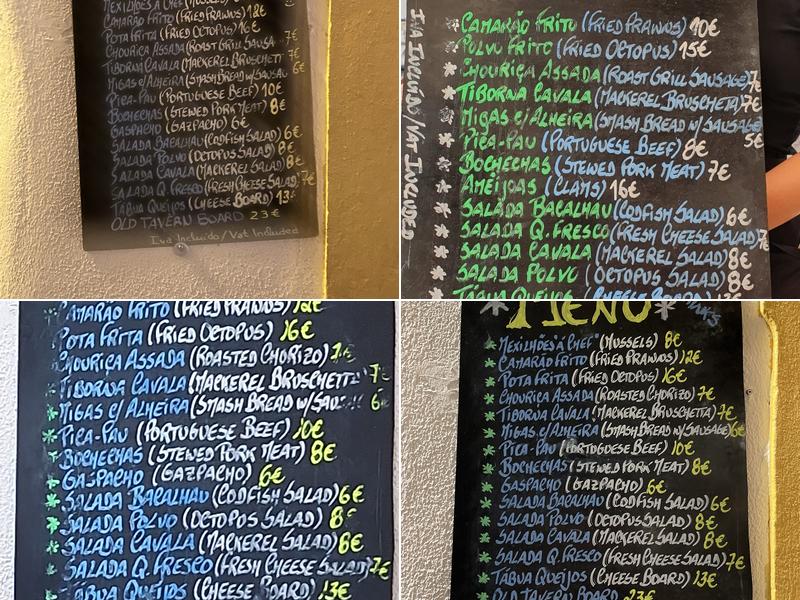 Mexilhões à Chef (Mussels) 8€
Camarão Frito (Fried Prawns) 12€
Pota Frita (Fried Octopus) 16€
Chouriça Assada (Roast Grill Sausage 7€
Tiborna Cavala (Mackerel Bruschett 7€
Migas c/Alheira (Smash Bread w/Sausag 6€
Pica-Pau (Portuguese Beef) 10€
Bochechas (Stewed Pork Meat) 8€
Gaspacho (Gazpacho) 6€
Salada Bacalhau (Codfish Salad) 6€
Salada Polvo (Octopus Salad) 8€
Salada Cavala (Mackerel Salad) 8€
Salada Q. Fresco (Fresh Cheese Salad) 7€
Tábua Queijos (Cheese Board) 13€
Old Tavern Board 23€
Iva Incluido/Vat Included
Iva Incluído/Vat Included
Camarão Frito (Fried Prawns) 10€
Polvo Frito (Fried Octopus) 15€
Chouriça Assada (Roast Grill Sausage) 7€
Tiborna Cavala (Mackerel Bruscheta) 7€
Migas c/Alheira (Smash Bread w/Sausage
5€
Pica-Pau (Portuguese Beef) 8€
Bochechas (Stewed Pork Meat) 7€
Amêijoas (Clams) 16€
Salada Bacalhau (Codfish Salad) 6€
Salada Q. Fresco (Fresh Cheese Salad) 7€
Salada Cavala (Mackerel Salad) 8€
Salada Polvo (Octopus Salad) 8€
Tábua Queijos (Cheese Board) 13€
Camarão Frito (Fried Prawns) 12€
Pota Frita (Fried Octopus) 16€
Chouriça Assada (Roasted Chorizo) 7€
Tiborna Cavala (Mackerel Bruschett 7€
Migas c/Alheira (Smash Bread w/Sau 6
Pica-Pau (Portuguese Beef) 10€
Bochechas (Stewed Pork Meat) 8€
Gaspacho (Gazpacho) 6€
Salada Bacalhau (Codfish Salad) 6€
Salada Polvo (Octopus Salad) 8€
Salada Cavala (Mackerel Salad) 8€
Salada Q. Fresco (Fresh Cheese Salad) 7€
Tábua Queijos (Cheese Board) 13€
Menu
Mexilhões "à Chef" (Mussels) 8€
Camarão Frito (Fried Prawns) 12€
Pota Frita (Fried Octopus) 16€
Chouriça Assada (Roasted Chorizo) 7€
Tiborna Cavala (Mackerel Bruschetta) 7€
Migas c/Alheira (Smash Bread w/Sausage) 6€
Pica-Pau (Portuguese Beef) 10€
Bochechas (Stewed Pork Meat) 8€
Gaspacho (Gazpacho) 6€
Salada Bacalhau (Codfish Salad) 6€
Salada Polvo (Octopus Salad) 8€
Salada Cavala (Mackerel Salad) 8€
Salada Q. Fresco (Fresh Cheese Salad) 7€
Tábua Queijos (Cheese Board) 13€
Old Tavern Board 23€